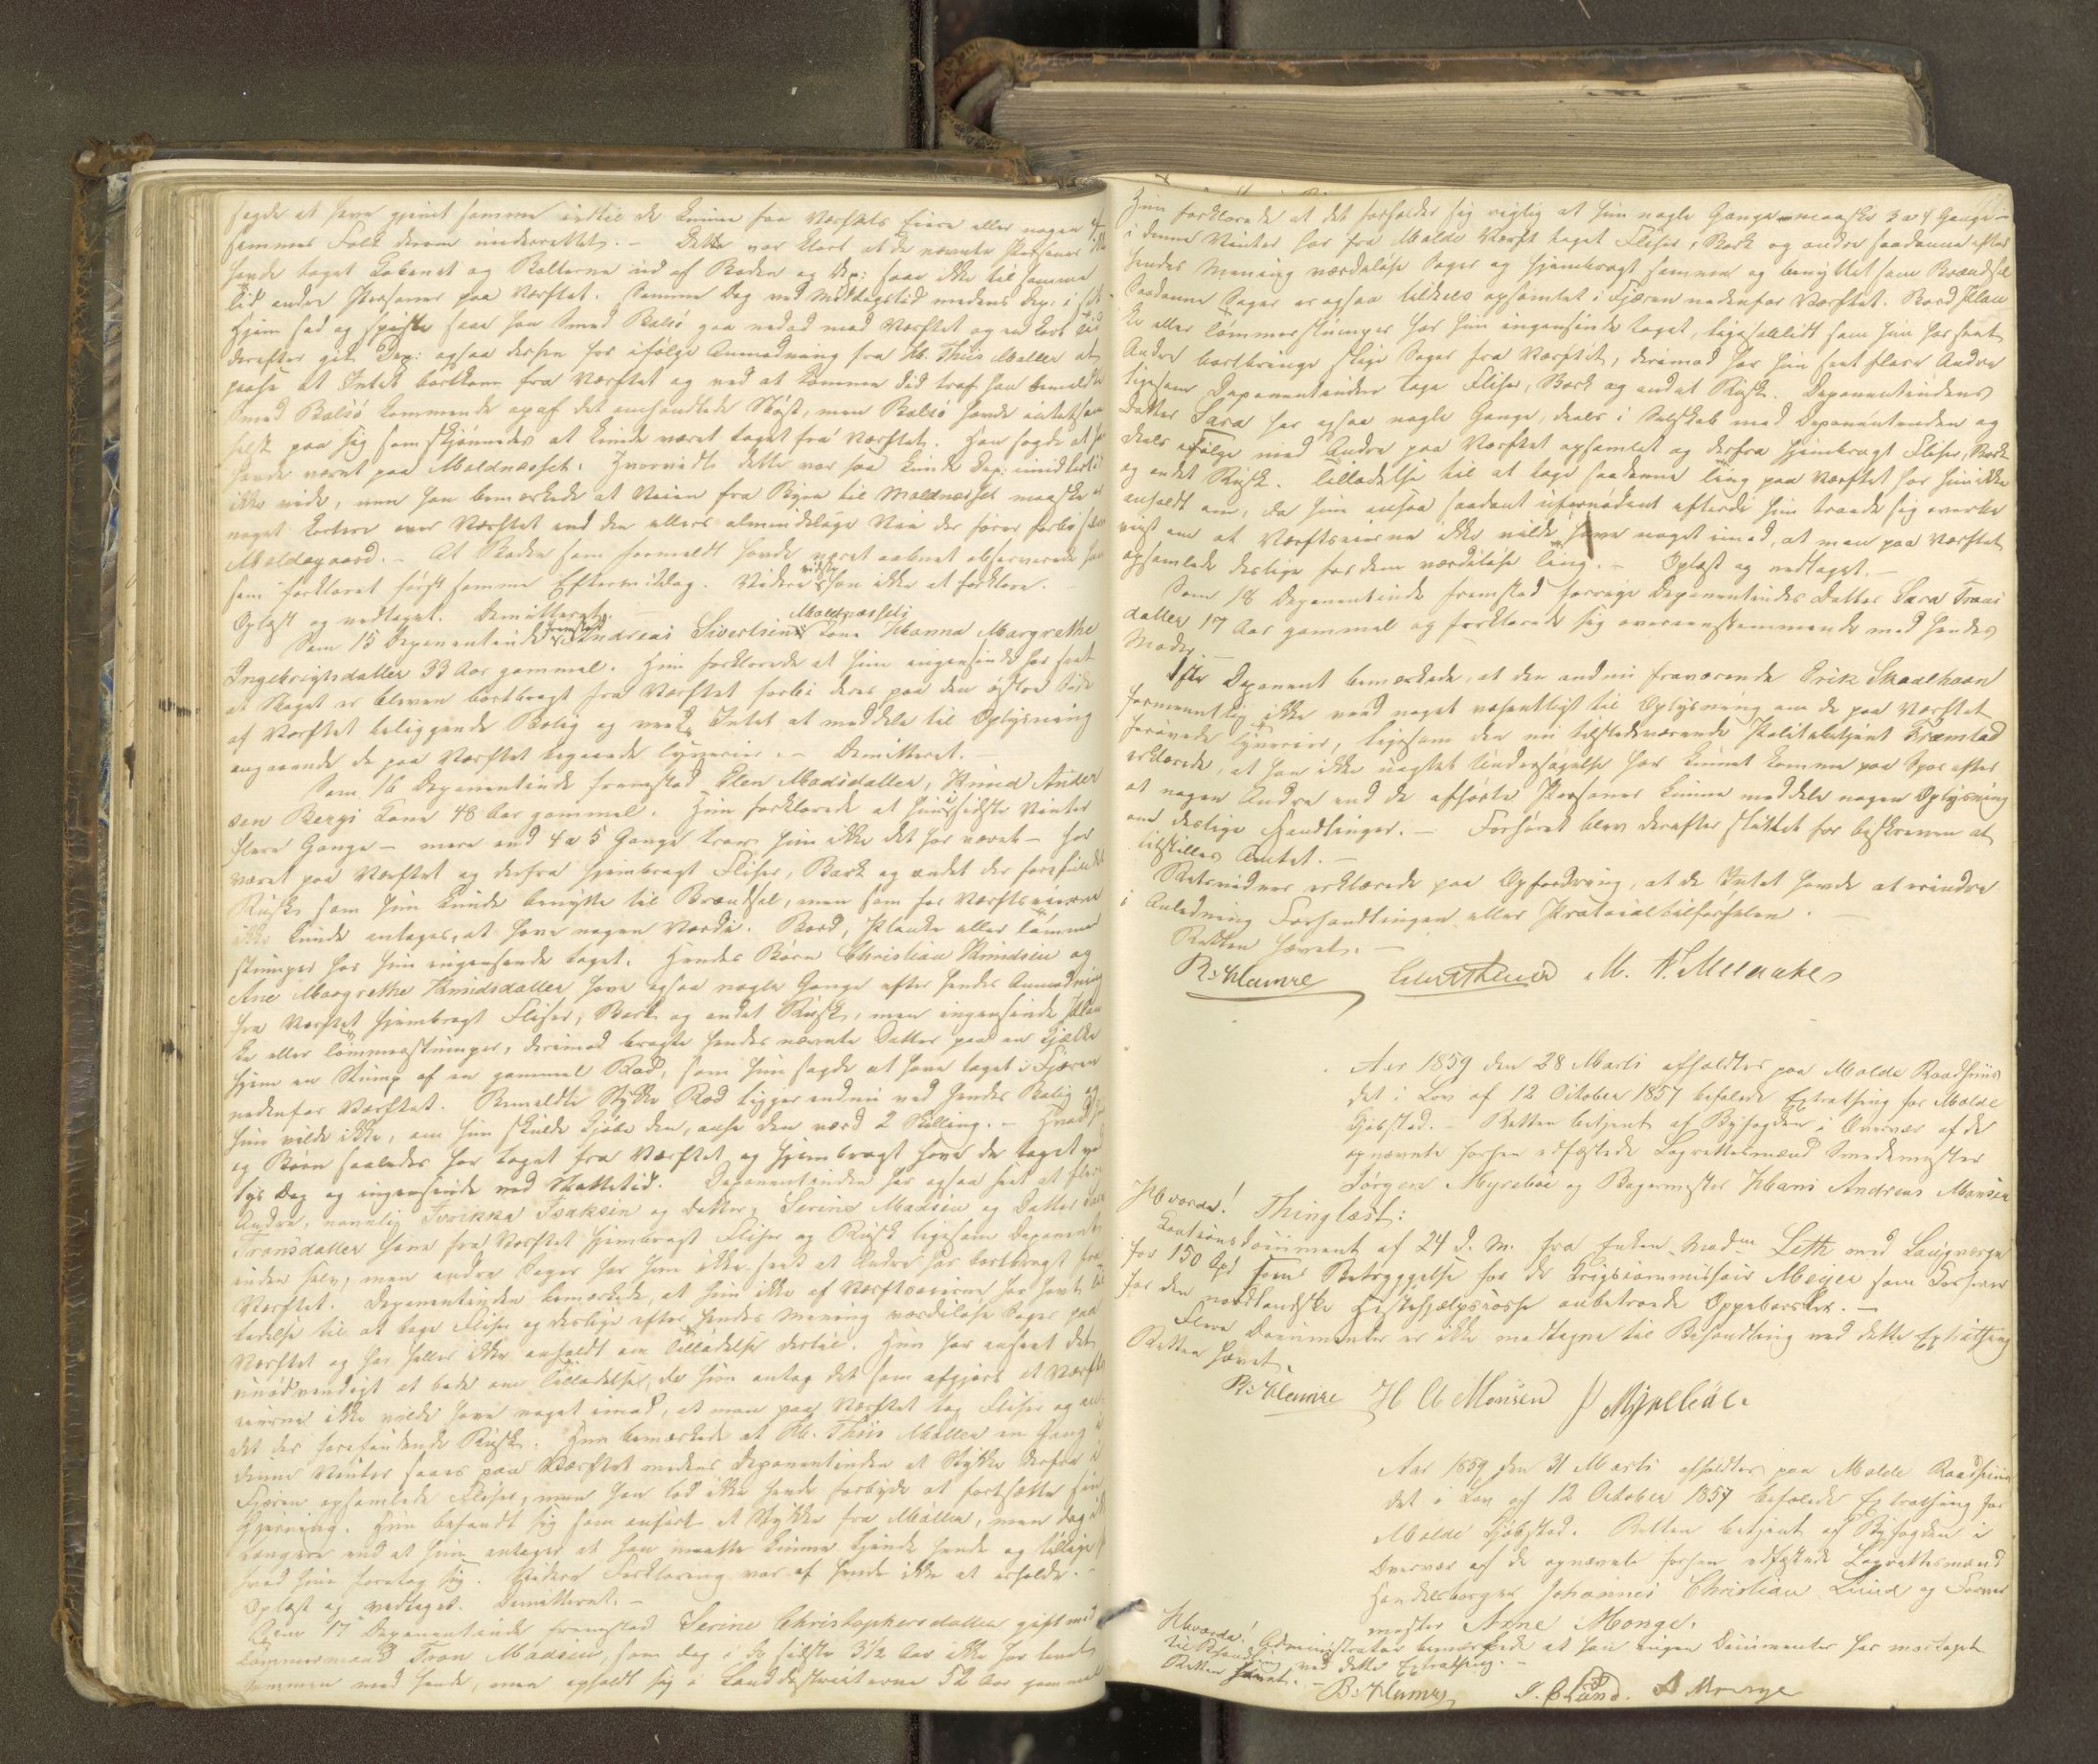 sagde at have gjemt samme indtil de kunne faa Værftets Eiere eller nogen af
sammes Folk derom underrettet. – Dette var klart at de nævnte Personer ikke
havde taget Tobenet og Bolterne ud af Boden og Dep: saae ikke til samme
Tid andre Personer paa Værftet. Samme Dag ved Middagstid medens Dep: i sit
Hjem sad og spiste saae han Smed Balsø gaa nedad mod Værftet og
derefter gik Dep: ogsaa derhen for ifølge Anmodning fra Hr. Thiis Møller at
passe at Intet bortkom fra Værftet og ved at komme did traf han bemeldte
Smed Balsø kommende op af det omhandlede Nøst, men Balsø havde intetsom
helst paa sig som skjønnedes at kunde været taget fra Værftet. Han sagde at han
havde været paa Moldnæsset. Hvorvidt dette var saa kunde Dep: imidlertid
ikke vide, men han bemærkede at Veien fra Byen til Moldnæsset maaskee er
noget kortere over Værftet end den ellers almindelige Vei der fører forbi
Moldegaard. – At Boden som formeldt havde været aabnet observerede han
som forklaret først samme Eftermiddag. Videre vidste han ikke at forklare. –
Oplæst og vedtaget. Demitteret. –
Som 15 Deponentinde fremstod Andreas Sivertsens Moldnæssets Kone Hanna Margrethe
Ingebrigtsdatter 33 Aar gammel. Hun forklarede at hun ingensinde har seet
at Noget er bleven bortbragt fra Værftet forbi deres paa den østre Side
af Værftet beliggende Bolig og veed Intet at meddele til Oplysning
angaaende de paa Værftet begaaede Tyverier. – Demitteret. –
Som 16 Deponentinde fremstod Elen Madsdatter, Knud Ander
sen Bergs Kone 48 Aar gammel. Hun forklarede at hun sidste Vinter
flere Gange – mere end 4 a 5 Gange troer hun ikke det har været – har
været paa Værftet og derfra hjembragt Fliser, Bark og andet der forefindende
Rusk som hun kunde benytte til Brændsel, men som for Værftseierne
ikke kunde antages, at have nogen Værdi. Bord, Planke eller Tømmer
stumper har hun ingensinde taget. Hendes Børn Christian Knudsen og
Ane Margrethe Knudsdatter have ogsaa nogle Gange efter hendes Anmodning
fra Værftet hjembragt Fliser, Bark og andet Rusk, men ingensinde Plan
ke eller Tømmerstumper, derimod bragte hendes nævnte Datter paa en Kjælke
hjem en Stump af en gammel Rod, som hun sagde at have taget i Fjæren
nedenfor Værftet. Bemeldte Stykke Rod ligger endnu ved hendes Bolig og
hun vilde ikke, om hun skulde kjøbe den, anse den værd 2 Skilling. – Hvad hun
og Børn saaledes har taget fra Værftet og hjembragt have de taget ved
lys Dag og ingensinde ved Nattetid. Deponentinden har ogsaa seet at flere
Andre, navnlig Fredrikka Isaksen og Datter, Serine Madsen og Datter Sara
Tronsdatter have fra Værftet hjembragt Fliser og Rusk ligesom Deponent
inden selv, men andre Sager har hun ikke seet at Andre har bortbragt fra
Værftet. Deponentinden bemærkede, at hun ikke af Værftseierne har havt Til
ladelse til at tage Fliser og deslige efter hendes Mening værdiløse Sager paa
Værftet og har heller ikke anholdt om Tilladelse dertil. Hun har anseet det
unødvendigt at bede om Tilladelse, da hun antog det som afgjort at Værfts
eierne ikke vilde have noget imod, at man paa Værftet tog Fliser og an
det der forefindende Rusk. Hun bemærkede at Hr. Thiis Møller en Gang i
denne Vinter saaes paa Værftet medens Deponentinden et Stykke derfra i
Fjæren opsamlede Fliser, men han lod ikke hende forbyde at fortsætte sin
Gjerning. Hun befandt sig som anført et Stykke fra Møller, men dog ikke
længere end at hun antager at han maatte kunne kjende hende og tillige see
hvad hun foretog sig. Videre Forklaring var af hende ikke at erholde. –
Oplæst og vedtaget. Demitteret. –
Som 17 Deponentinde fremstod Serine Christophersdatter gift med
Tømmermand Tron Madsen, som dog i de sidste 3½ Aar ikke har levet
sammen med hende, men opholdt sig i Landdistricterne 52 Aar gammel
Hun forklarede at det forholder sig rigtig at hun nogle Gange – maaske 3 a 4 Gange –
i denne Vinter har fra Molde Værft taget Fliser, Bark og andre saadanne efter
hendes Mening værdiløse Sager og hjembragt samme og benyttet som Brændsel
Saadanne Sager er ogsaa tildeels opsamlet i Fjæren nedenfor Værftet. Bord Plan
ke eller Tømmerstumper har hun ingensinde taget, ligesaalidt som hun har seet
Andre bortbringe slige Sager fra Værftet, derimod har hun seet flere Andre
ligesom Deponentinden tage Fliser, Bark og andet Rusk. Deponentindens
Datter Sara har ogsaa nogle Gange, deels i Selskab med Deponentinden og
deels ifølge med Andre paa Værftet opsamlet og derfra hjembragt Fliser, Bark
og andet Rusk. Tilladelse til at tage saadanne Ting paa Værftet har hun ikke
anholdt om, da hun ansaa saadant ufornødent efterdi hun troede sig overbe
vist om at Værftseierne ikke vilde have noget imod, at man paa Værftet
opsamlede deslige for dem værdiløse Ting. – Oplæst og vedtaget. –
Som 18 Deponentinde fremstod forrige Deponentindes Datter Sara Trons
datter 17 Aar gammel og forklarede sig overeensstemmende med hendes
Moder. –
1ste Deponent bemærkede, at den endnu fraværende Erik Skaalhavn
formeentlig ikke veed noget væsentligt til Oplysning om de paa Værftet
forøvede Tyverier, ligesom den nu tilstedeværende Politibetjent Fremstad
erklærede, at han ikke uagtet Undersøgelse har kunnet komme paa Spor efter
at nogen Andre end de afhørte Personer kunne meddele nogen Oplysning
om deslige Handlinger. – Forhøret blev derefter sluttet for beskreven at
tilstilles Amtet. –
Retsvidner erklærede paa Opfordring, at de Intet havde at erindre
i Anledning Forhandlingen eller Protocoltilførselen. –
Retten hævet. –
B: Klumre M. N. Meinaker
Aar 1859 den 28 Marts afholdtes paa Molde Raadhuus
det i Lov af 12 October 1857 befalede Extrathing for Molde
Kjøbstad. – Retten betjent af Byfogden i Overvær af de
opnævnte forhen edfæstede Lagrettesmænd Smedemester
Jørgen Myreboe og Bagermester Hans Andreas Monsen
Hvorda! Thinglæst:
Cautionsdocument af 24 d. M. fra Enken Madme Leth med Laugværge
for 150 Spd som Betryggelse for de Krigscommissair Meyer som Casserer
for den nordlandske Fiskehjælpscasse anbetroede Oppebørsler. –
Flere Documenter er ikke modtagne til Behandling ved dette Extrathing
Retten hævet.
B: Klumre H A Monsen J Myreboe.
Aar 1859 den 31 Marts afholdtes paa Molde Raadhuus
det i Lov af 12 October 1857 befalede Extrathing for
Molde Kjøbstad. Retten betjent af Byfogden i
Overvær af de opnævnte forhen edfæstede Lagrettesmænd
Handelsborger Johannes Christian Lund og Farver
mester Arne Monge.
Hvorda! Administrator bemærkede at han ingen Documenter har modtaget
til Behandling ved dette Extrathing. –
Retten hævet. –
B: Klumre J. C Lund. A Monge